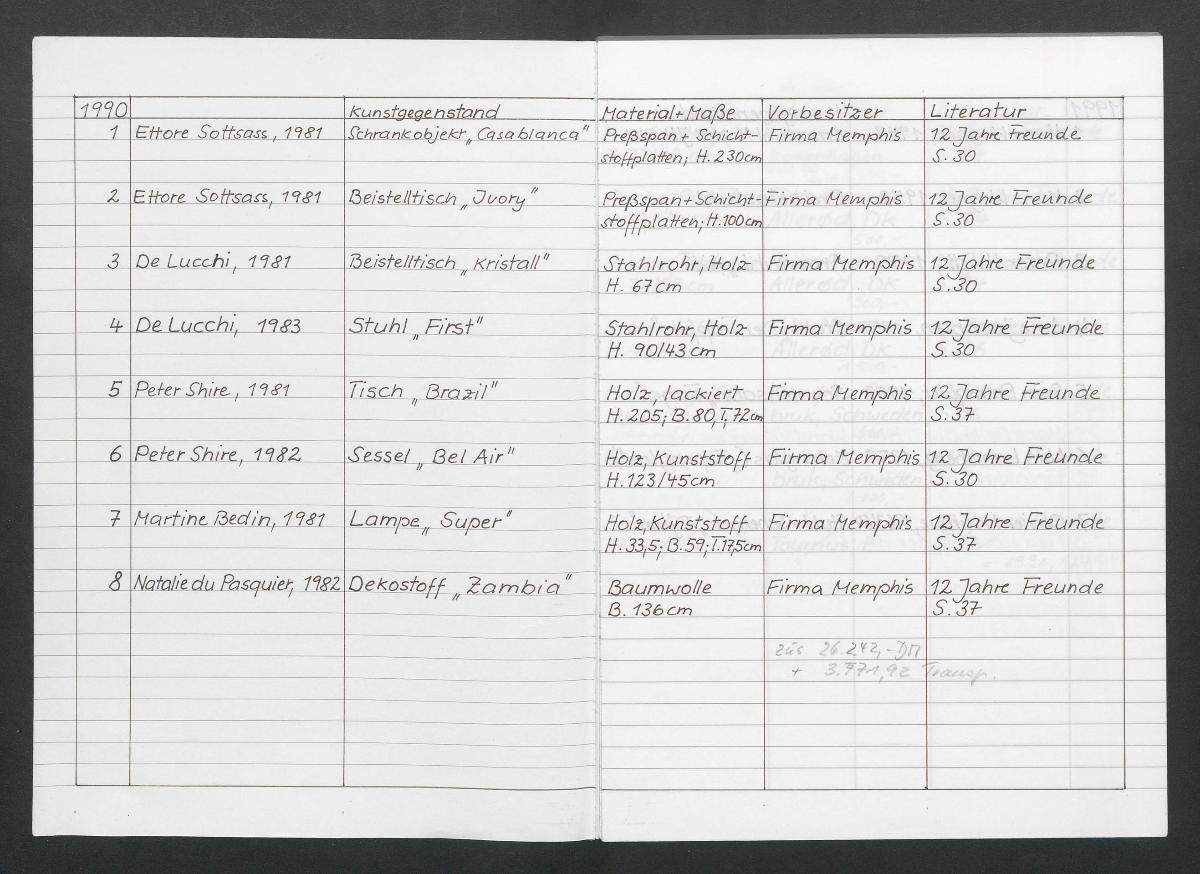 1990 Kunstgegenstand Material+Maße Vorbesitzer Literatur
1 Ettore Sottsass, 1981 Schrankobjekt „Casablanca" Preßspan+Schicht- Firma Memphis 12 Jahre Freunde
stoffplatten; H.230cm S.30
2 Ettore Sottsass, 1981 Beistelltisch „Ivory" Preßspan+Schicht- Firma Memphis 12 Jahre Freunde
stoffplatten; H.100cm S.30
3 De Lucchi, 1981 Beistelltisch „Kristall" Stahlrohr, Holz Firma Memphis 12 Jahre Freunde
H. 67cm S.30
4 De Lucchi, 1983 Stuhl „First" Stahlrohr, Holz Firma Memphis 12 Jahre Freunde
H. 90/43cm S.30
5 Peter Shire, 1981 Tisch „Brazil" Holz, lackiert Firma Memphis 12 Jahre Freunde
H.205; B.80, T.72cm S.37
6 Peter Shire, 1982 Sessel „Bel Air" Holz, Kunststoff Firma Memphis 12 Jahre Freunde
H.123/45cm S.30
7 Martine Bedin, 1981 Lampe „Super" Holz, Kunststoff Firma Memphis 12 Jahre Freunde
H.33,5; B.59; T.17,5cm S.37
8 Natalie du Pasquier, 1982 Dekostoff „Zambia" Baumwolle Firma Memphis 12 Jahre Freunde
B. 136cm S.37
zus. 26.242,- DM
+ 3.771,92 Transp.